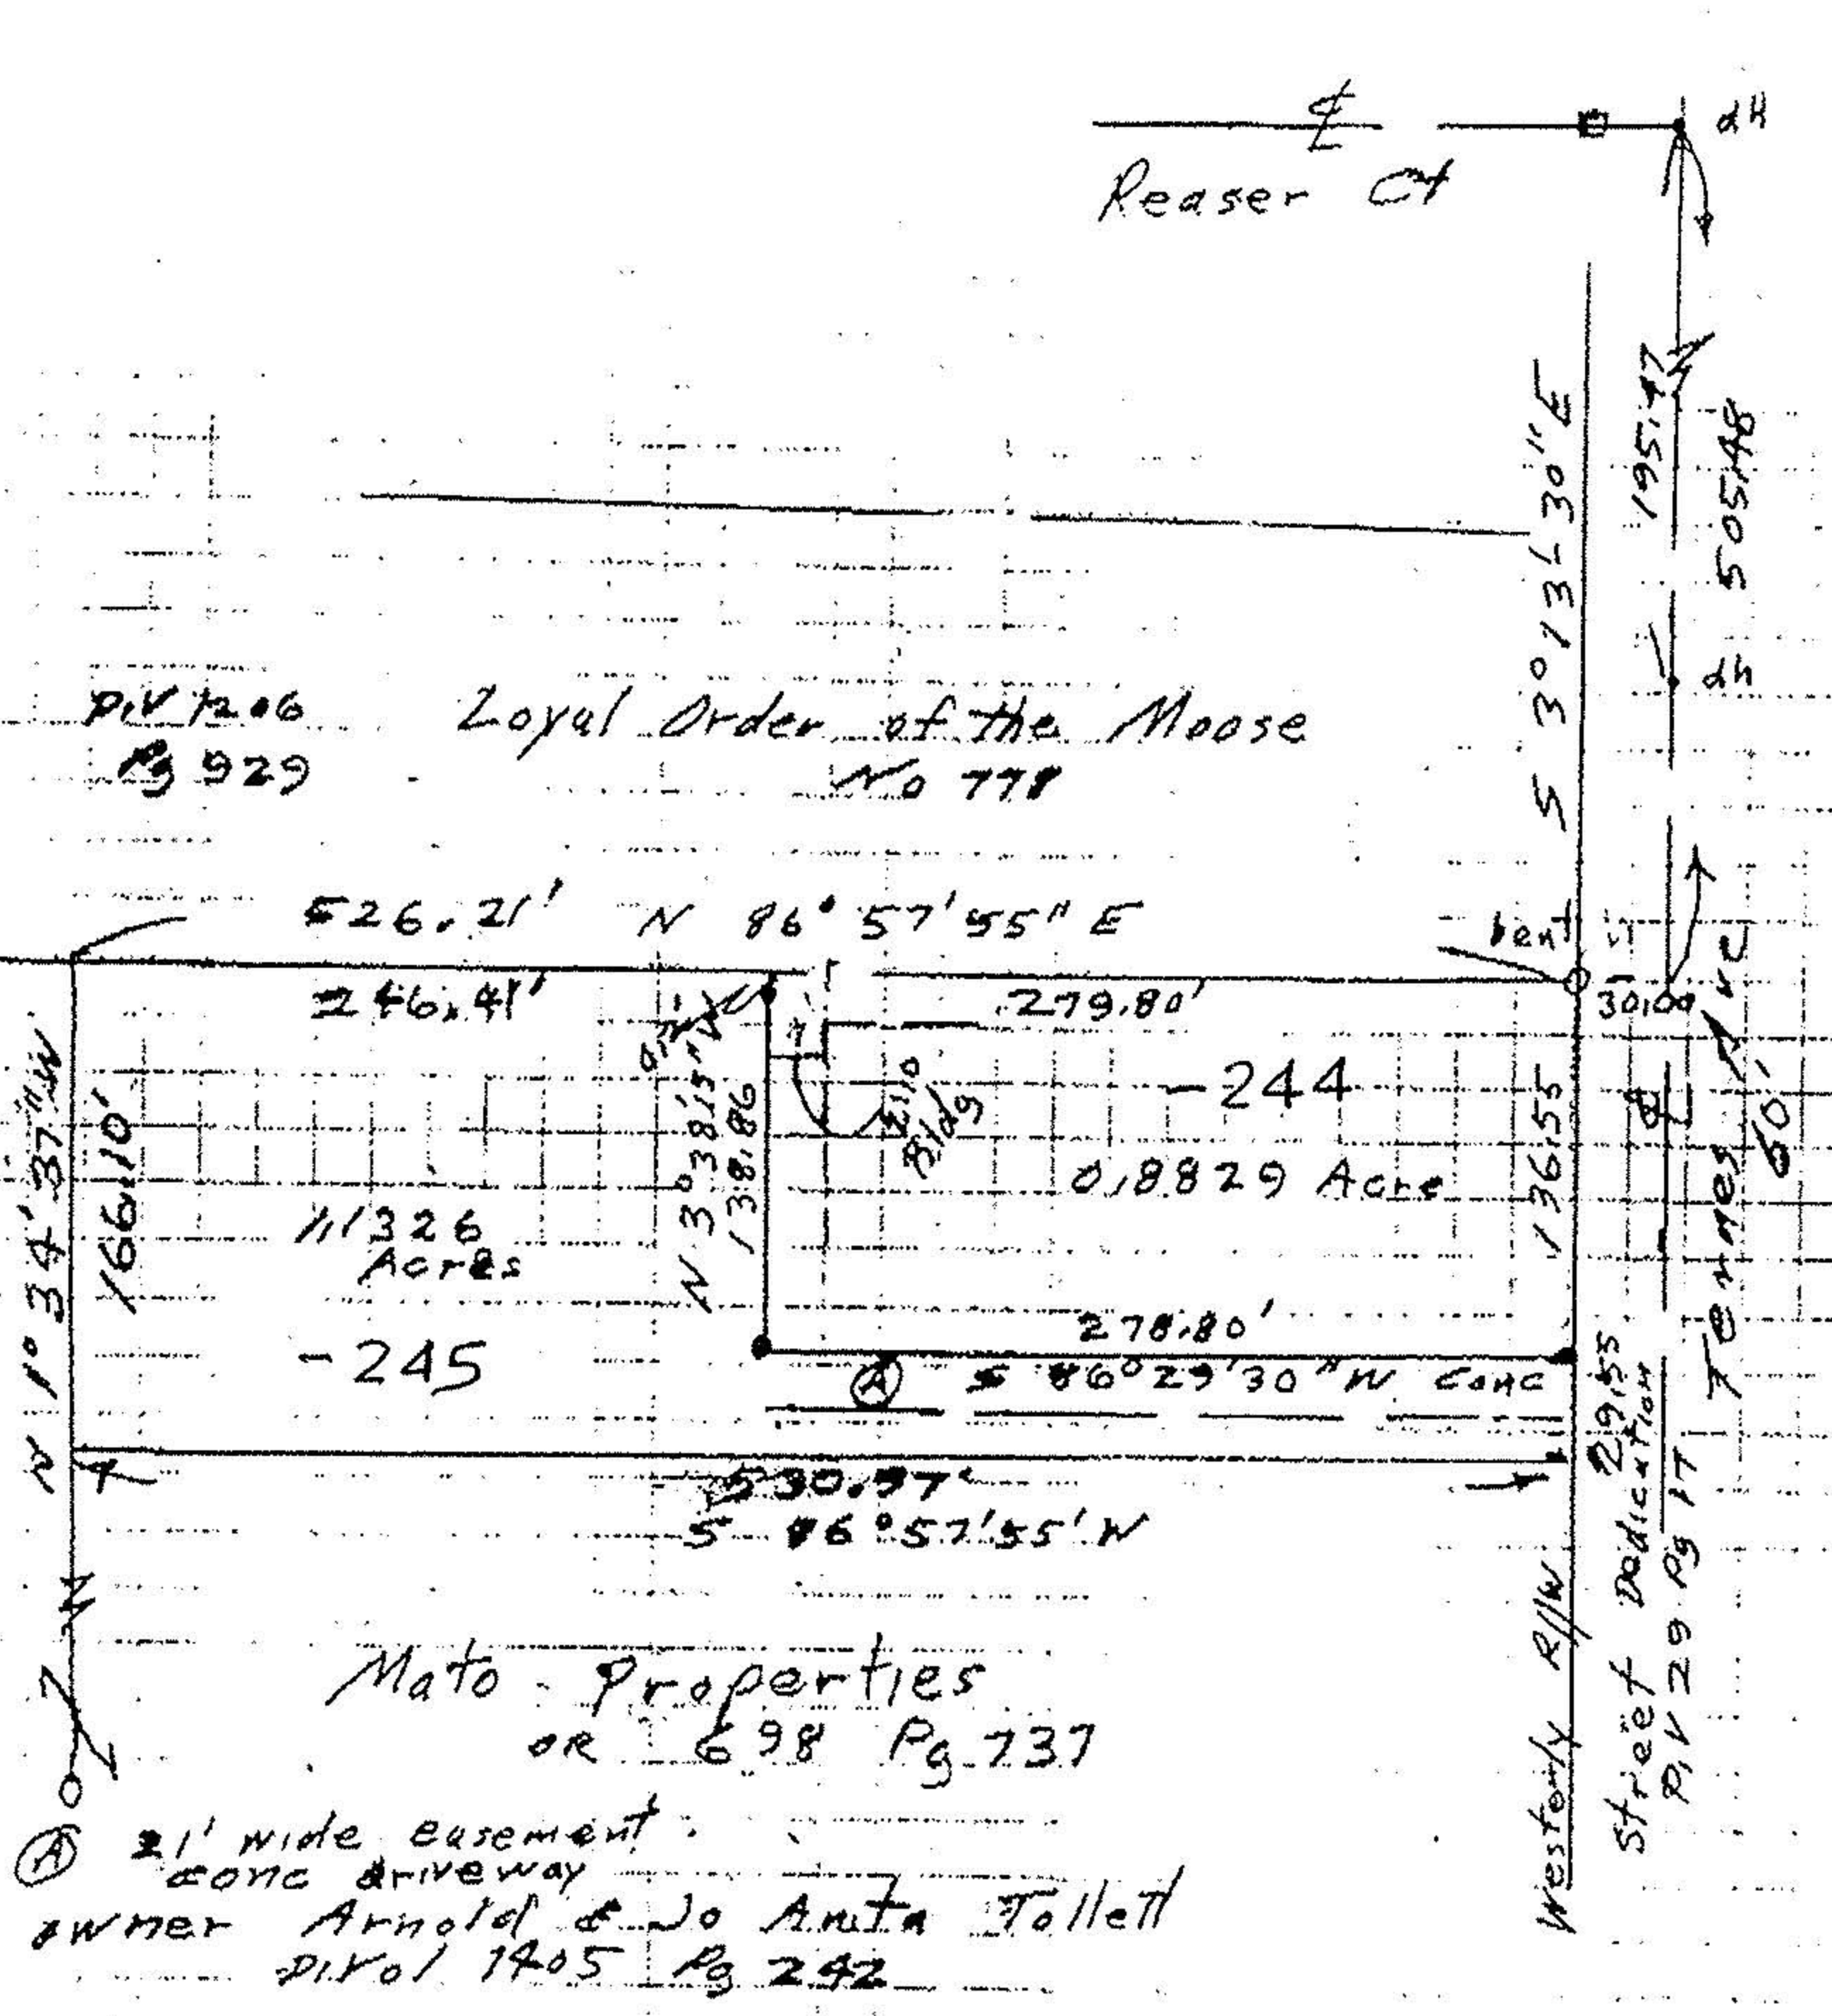 ℄
dh
Reaser Ct
S 3°13'-30" E
195.47
505.48
dh
D.V 1206
Pg 929
Loyal Order of the Moose
No 778
526.21' N 86° 57' 55" E
bent
246.41'
279.80'
30.00
N 1° 34' 37" W
166.10'
N 3°38'15" W
138.86
Bldg
-244
0.8829 Acre
136.55
℄
Termes Ave
60'
1.1326
Acres
-245
278.80'
Ⓐ S 86°29'30" W conc
29.55
530.97'
S 86°57'55' W
Mato-Properties
OR 698 Pg 737
Westerly R/W
Street Dedication
P.V 29 Pg 17
Ⓐ 21' wide easement
conc driveway
owner Arnold & Jo Anita Tollett
D.Vol 1405 Pg 242